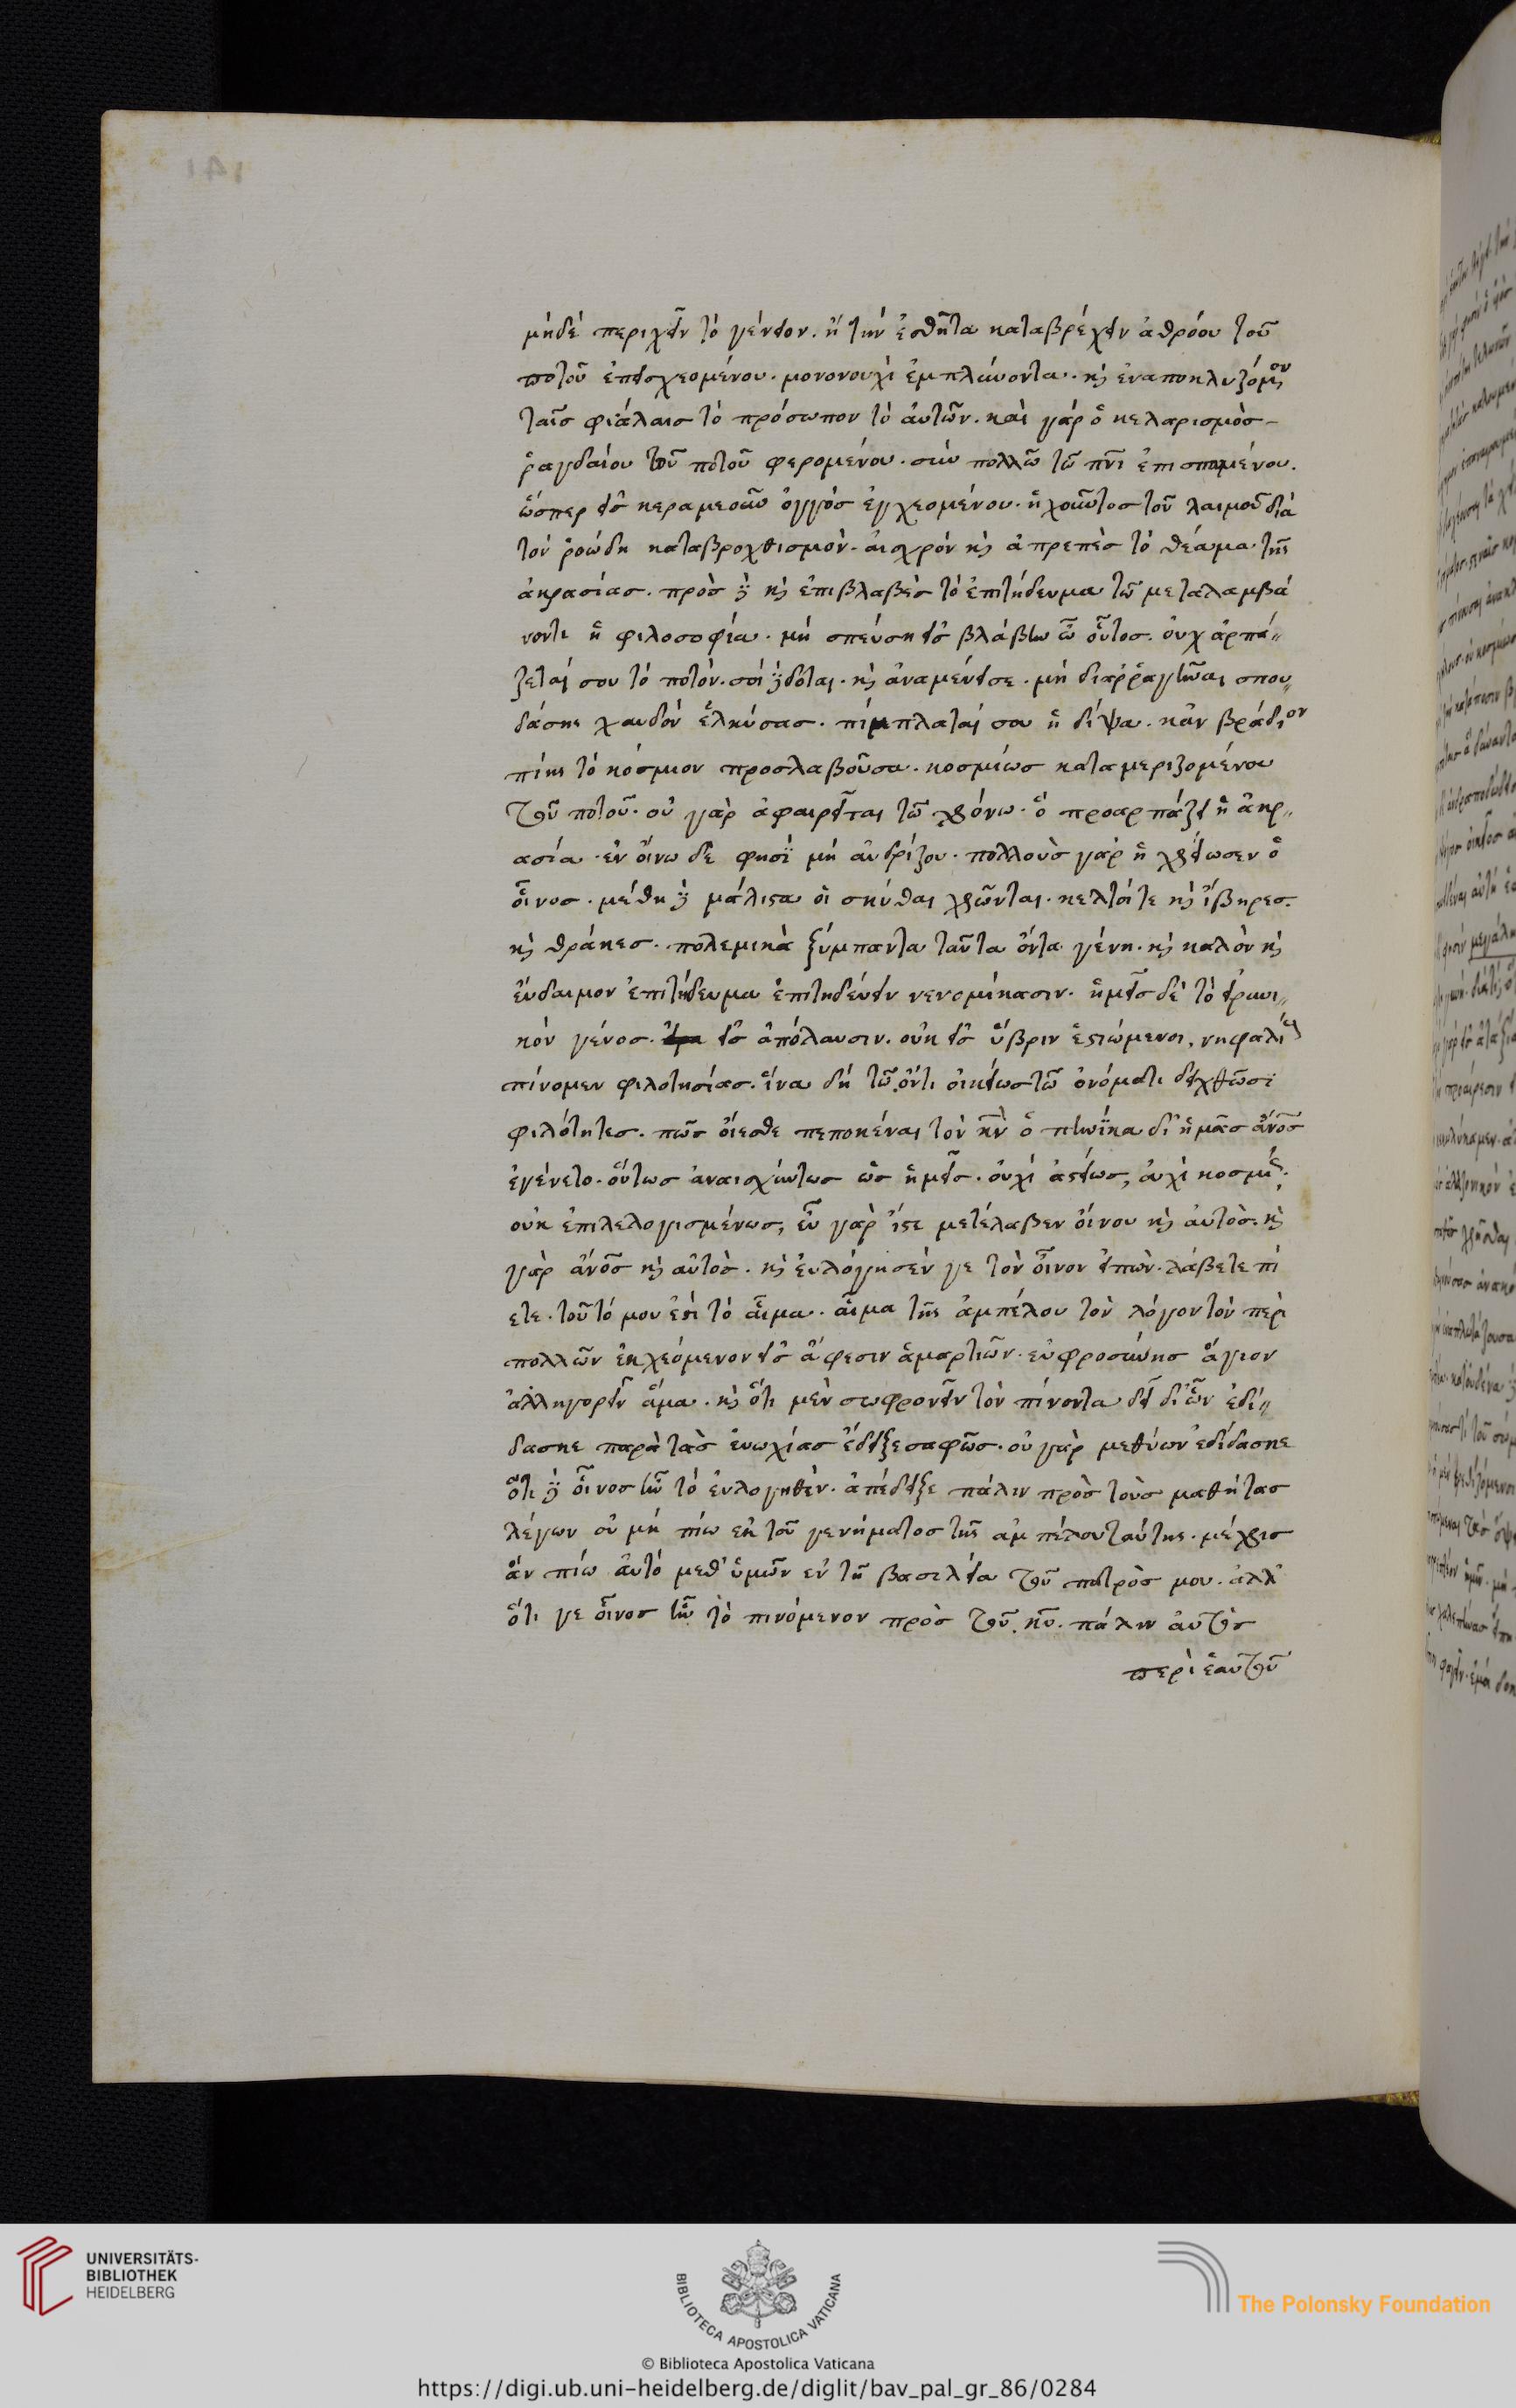 141
μηδὲ περιχεῖν τὸ γένειον. ἢ τὴν ἐσθῆτα καταβρέχειν ἀθρόου τοῦ
ποτοῦ ἐπεισχεομένου. μονονουχὶ ἐμπλύνοντα. καὶ ἐναποκλυζόμενον
ταῖς φιάλαις τὸ πρόσωπον τὸ αὐτῶν. καὶ γὰρ ὁ κελαρισμὸς
ῥαγδαίου τοῦ ποτοῦ φερομένου. σὺν πολλῶ τῶ πνι ἐπισπωμένου.
ὥσπερ εἰς κεραμεοῦν ἀγγος ἐγχεομένου. ἠχοῦντος τοῦ λαιμοῦ διὰ
τὸν ῥοώδη καταβροχθισμὸν. αἰσχρὸν καὶ ἀπρεπὲς τὸ θέαμα τῆς
ἀκρασίας. πρὸς δὲ καὶ ἐπιβλαβὲς τὸ ἐπιτήδευμα τῶ μεταλαμβά
νοντι ἡ φιλοσοφία. μὴ σπεύσης εἰς βλάβην ὦ οὗτος. οὐχ ἁρπά
ζεταί σου τὸ ποτὸν. σοὶ δέδοται. καὶ ἀναμένει σε. μὴ διαῤῥαγῆναι σπου
δάσης χανδὸν ἑλκύσας. πίμπλαταί σου ἡ δίψα. κἂν βράδιον
πίης τὸ κόσμιον προσλαβοῦσα. κοσμίως καταμεριζομένου
τοῦ ποτοῦ. οὐ γὰρ ἀφαιρεῖται τῶ χρόνω. ὃ προαρπάζει ἡ ἀκρ
ασία. ἐν οἴνω δὲ φησϊ μὴ ἀνδρίζου. πολλοὺς γὰρ ἠχρείωσεν ὁ
οἶνος. μέθη δὲ μάλιστα οἱ σκύθαι χρῶνται. κελτοί τε καὶ ἴβηρες.
καὶ θράκες. πολεμικὰ ξύμπαντα ταῦτα ὄντα γένη. καὶ καλὸν καὶ
εὔδαιμον ἐπιτήδευμα ἐπιτηδεύειν νενομίκασιν. ἡμεῖς δὲ τὸ εἰρηνι
κὸν γένος. εἰς ἀπόλαυσιν. οὐκ εἰς ὕβριν ἑστιώμενοι, νηφαλίους
πίνομεν φιλοτησίας. ἵνα δὴ τῶ ὄντι οἰκείως τῶ ὀνόματι δειχθῶσϊ
φιλότητες. πῶς οἴεσθε πεποκέναι τὸν κν ὁ πηνίκα δι' ἡμᾶς ἄνος
ἐγένετο. οὕτως ἀναισχύντως ὡς ἡμεῖς. οὐχὶ ἀστείως, οὐχὶ κοσμίως,
οὐκ ἐπιλελογισμένως, εὖ γὰρ ἴστε μετέλαβεν οἴνου καὶ αὐτὸς. καὶ
γὰρ ἄνος καὶ αὐτὸς. καὶ εὐλόγησέν γε τὸν οἶνον εἰπὼν. λάβετε πί
ετε. τοῦτό μου ἐστὶ τὸ αἷμα. αἷμα τῆς ἀμπέλου τὸν λόγον τὸν περὶ
πολλῶν ἐκχεόμενον εἰς ἄφεσιν ἁμαρτιῶν. εὐφροσύνης ἅγιον
ἀλληγορεῖ ἅμα. καὶ ὅτι μὲν σωφρονεῖν τὸν πίνοντα δεῖ δι' ὧν ἐδί
δασκε παρὰ τὰς εὐωχίας ἔδειξε σαφῶς. οὐ γὰρ μεθύων ἐδίδασκε
ὅτι δὲ οἶνος ἦν τὸ εὐλογηθὲν. ἀπέδειξε πάλιν πρὸς τοὺς μαθητας
λέγων οὐ μὴ πίω ἐκ τοῦ γενήματος τῆς ἀμπέλου ταύτης. μέχρις
ἂν πίω αὐτὸ μεθ' ὑμῶν ἐν τῆ βασιλεία τοῦ πατρὸς μου. ἀλλ'
ὅτι γε οἶνος ἦν τὸ πινόμενον πρὸς τοῦ κυ. πάλιν αὐτὸς
περὶ ἑαυτοῦ
UNIVERSITÄTS-
BIBLIOTHEK
HEIDELBERG
BIBLIOTECA APOSTOLICA VATICANA
The Polonsky Foundation
© Biblioteca Apostolica Vaticana
https://digi.ub.uni-heidelberg.de/diglit/bav_pal_gr_86/0284